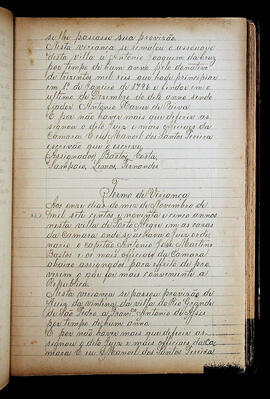 se lhe passasse sua provizão
Nesta veriança se rematou o assougue
desta villa a Antonio Joaquim da Cruz
por tempo de hum anno pelo donativo
de trezentos mil reis que hade principiar
em 1º de Janeiro de 1796 e findar em o
ultimo de Dezembro do dito anno sendo
fiador Antonio Xavier de Paiva
E por não haver mais que deferir as
signou o dito Juiz e mais officiaes da
Camara E eu Manoel dos Santos Pereira
escrivão que o escrevy
Assignados Bastos, Costa,
Sampaio, Lemos, Fernandes
Termo de Veriança
Aos onze dias do mez de Novembro de
mil sete centos e noventa e cinco annos
nesta villa de Porto Alegre em as cazas
da Camara onde se achava o Juiz orde
nario o capitão Antonio José Martins
Bastos e os mais officiaes da Camara
abaixo assignados para effeito de pro
verem o que for mais conveniente a
Republica
Nesta veriança se passou provizão de
Juiz da vintena da villa do Rio Grande
de São Pedro a Franco Antonio de
por tempo de hum anno
E por não haver mais que deferir as
signou o dito Juiz e mais officiaes da Ca
mara E eu Manoel dos Santos Pereira